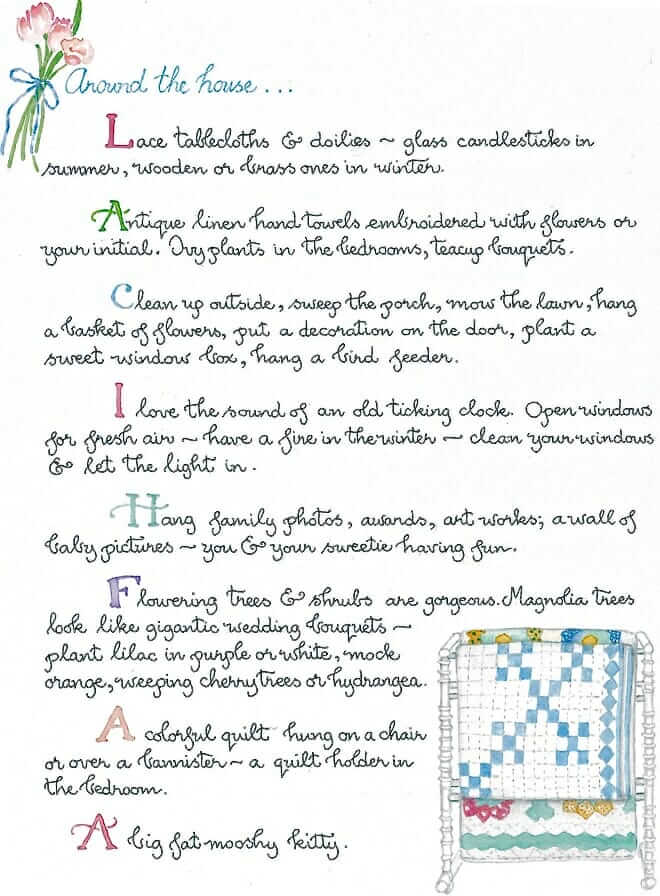 Around the house...
Lace tablecloths & doilies ~ glass candlesticks in
summer, wooden or brass ones in winter.
Antique linen hand towels embroidered with flowers or
your initial. Ivy plants in the bedrooms, teacup bouquets.
Clean up outside, sweep the porch, mow the lawn, hang
a basket of flowers, put a decoration on the door, plant a
sweet window box, hang a bird feeder.
I love the sound of an old ticking clock. Open windows
for fresh air ~ have a fire in the winter ~ clean your windows
& let the light in.
Hang family photos, awards, art works; a wall of
baby pictures ~ you & your sweetie having fun.
Flowering trees & shrubs are gorgeous. Magnolia trees
look like gigantic wedding bouquets ~
plant lilac in purple or white, mock
orange, weeping cherry trees or hydrangea.
A colorful quilt hung on a chair
or over a bannister ~ a quilt holder in
the bedroom.
A big fat mooshy kitty.